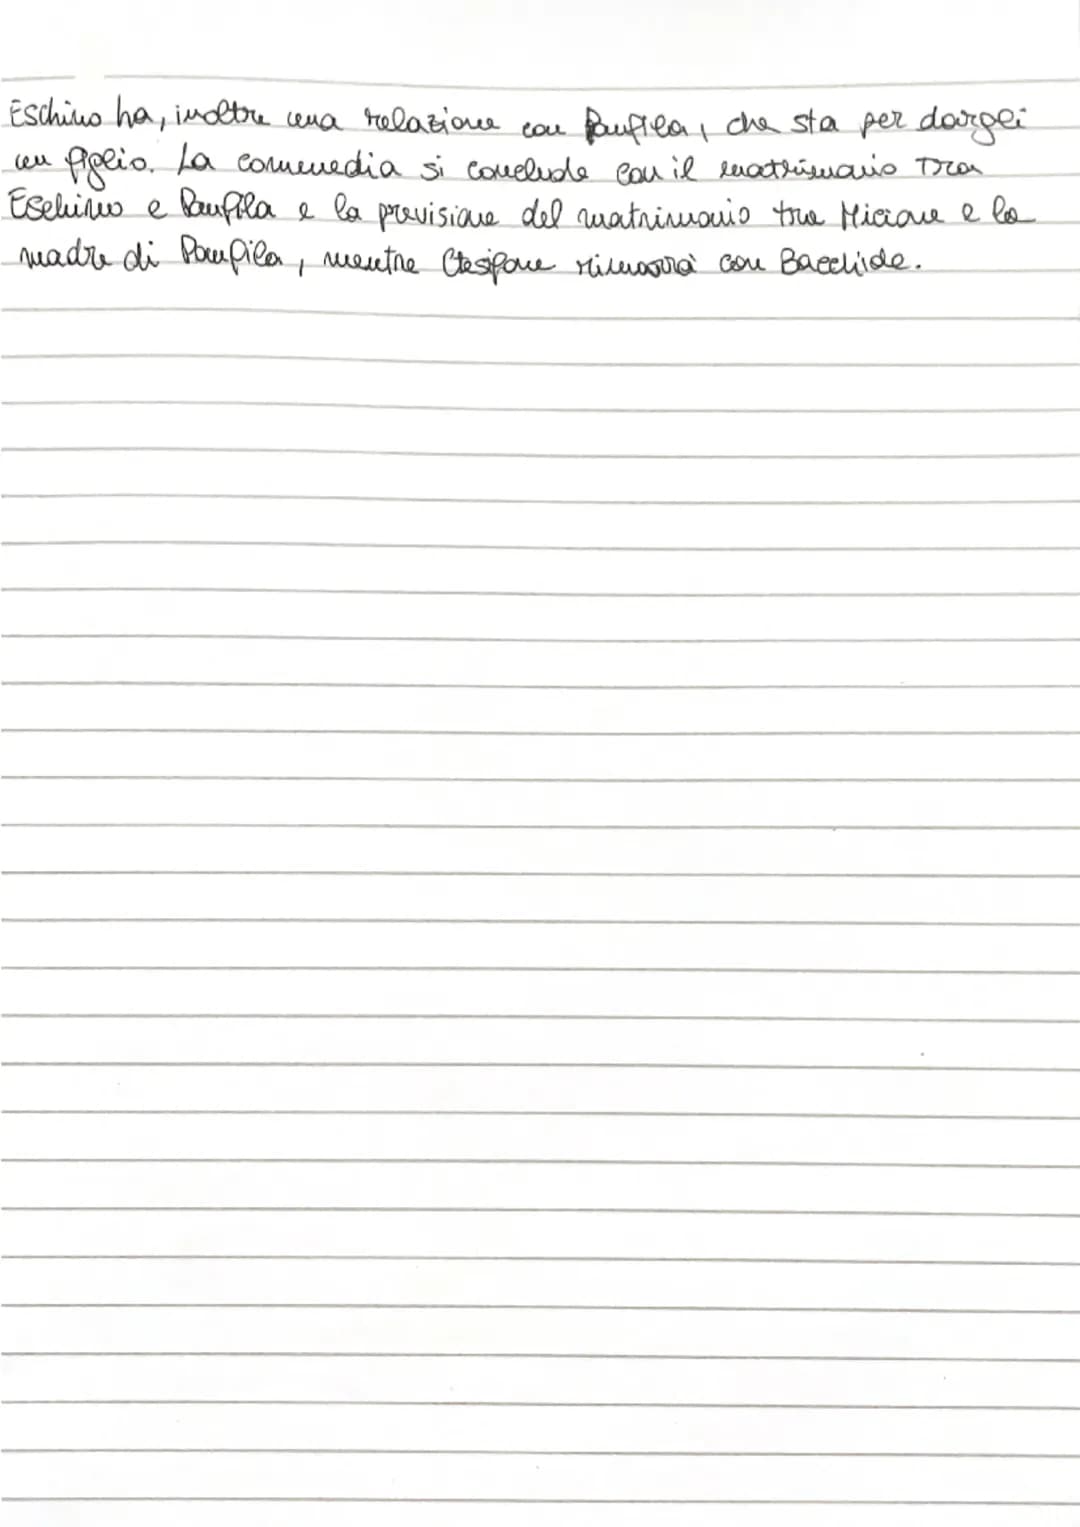 Eschino ha, inoltre una relazione con Panfila, che sta per dargli
un figlio. La commedia si conclude con il matrimonio tra
Eschino e Panfila e la previsione del matrimonio tra Micione e la
madre di Panfila, mentre Ctesifone rimarrà con Bacchide.